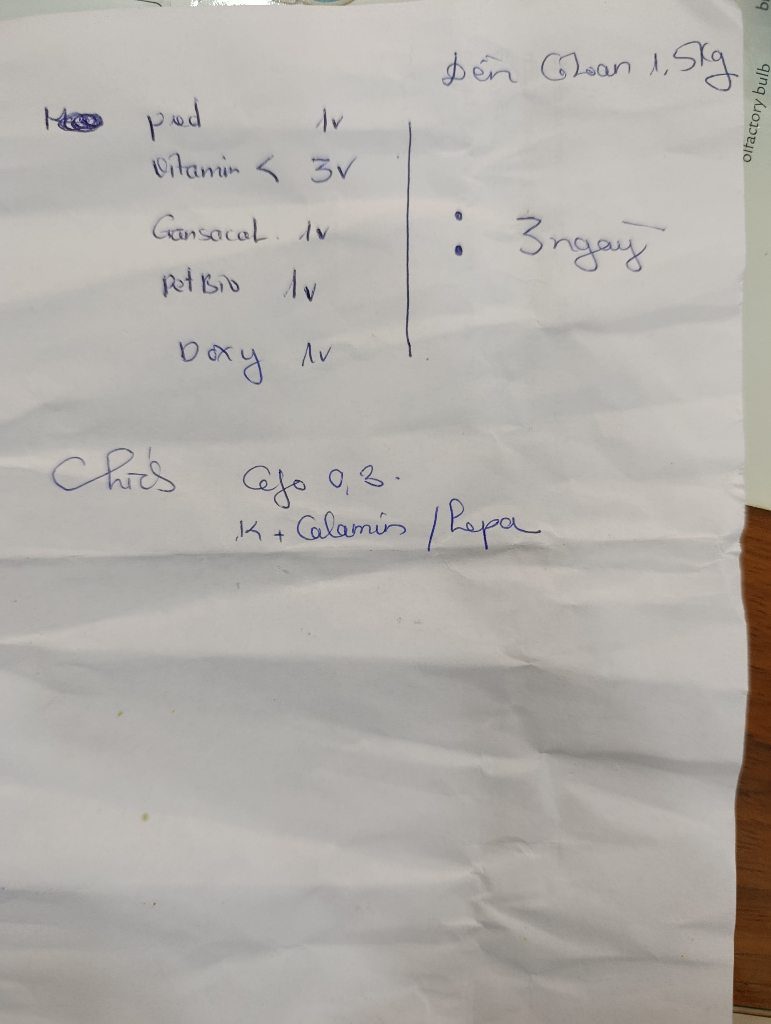 Đến Cô Loan 1,5kg
pred 1v
vitamin C 3v
Gansocal 1v
: 3 ngày
PetBio 1v
Doxy 1v
Chích Cefo 0,3.
K + Calamin / Hepa
olfactory bulb